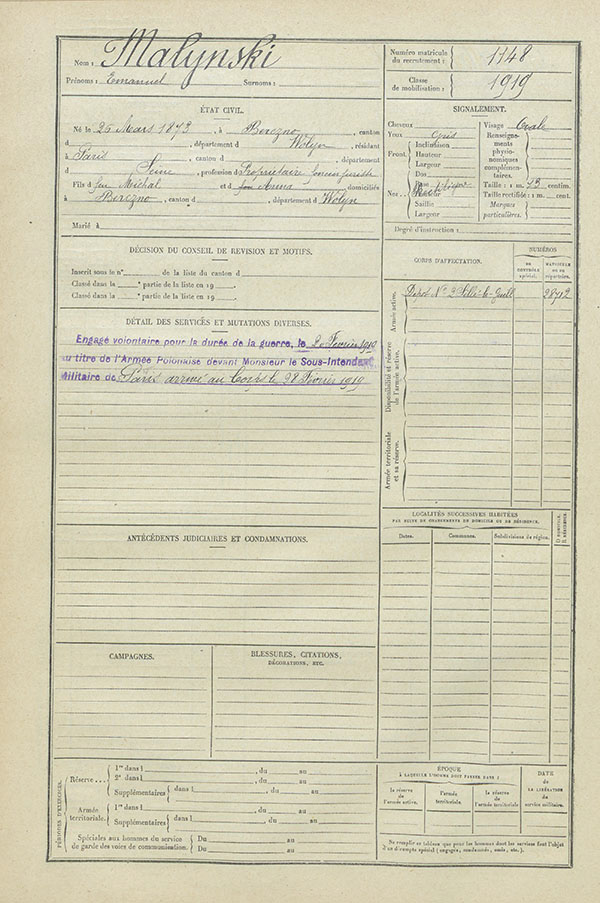 Nom : Malynski
Prénoms : Emanuel Surnoms :
Numéro matricule du recrutement : 1148
Classe de mobilisation : 1919
ÉTAT CIVIL.
Né le 26 Mars 1873, à Berezno, canton
d , département d Wolyn, résidant
à Paris, canton d , département
d Seine, profession d Propriétaire
Fils d feu Michal et d feu Anna, domiciliés
à Berezno, canton d , département d Wolyn
Marié à
SIGNALEMENT.
Cheveux
Yeux gris
Front. Inclinaison
Hauteur
Largeur
Nez... Dos
Base
Hauteur
Saillie
Largeur
Visage Ovale
Renseignements physionomiques complémentaires.
Taille : 1 m. 73 centim.
Taille rectifiée : 1 m. cent.
Marques particulières.
Degré d'instruction :
DÉCISION DU CONSEIL DE REVISION ET MOTIFS.
Inscrit sous le n° de la liste du canton d
Classé dans la e partie de la liste en 19 .
Classé dans la e partie de la liste en 19 .
CORPS D'AFFECTATION.
NUMÉROS
DE CONTRÔLE spécial.
MATRICULE OU DE répertoire.
Armée active.
Dépôt N° 2 Sillé-le-Guill 28712
Disponibilité et réserve de l'armée active.
Armée territoriale et sa réserve.
DÉTAIL DES SERVICES ET MUTATIONS DIVERSES.
Engagé volontaire pour la durée de la guerre, le 20 Février 1919
au titre de l'Armée Polonaise devant Monsieur le Sous-Intendant
Militaire de Paris arrivé au Corps le 28 Février 1919
ANTÉCÉDENTS JUDICIAIRES ET CONDAMNATIONS.
LOCALITÉS SUCCESSIVES HABITÉES
PAR SUITE DE CHANGEMENTS DE DOMICILE OU DE RÉSIDENCE.
Dates. Communes. Subdivisions de région. D. DOMICILE. R. RÉSIDENCE.
CAMPAGNES.
BLESSURES, CITATIONS,
DÉCORATIONS, ETC.
PÉRIODES D'EXERCICES.
Réserve... 1re dans l , du au
2e dans l , du au
Supplémentaires dans l , du au
Armée territoriale. 1re dans l , du au
Supplémentaires dans l , du au
Spéciales aux hommes du service de garde des voies de communication. Du au
Du au
ÉPOQUE
À LAQUELLE L'HOMME DOIT PASSER DANS :
la réserve de l'armée active.
l'armée territoriale.
la réserve de l'armée territoriale
DATE
de
LA LIBÉRATION
du
service militaire.
Ne remplir ce tableau que pour les hommes dont les services font l'objet
d'un décompte spécial (engagés, condamnés, omis, etc.).